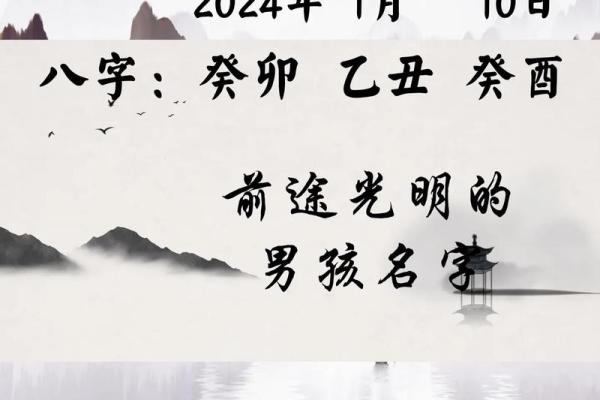 2024年 1月 10日
八字：癸卯 乙丑 癸酉
前途光明的
男孩名字